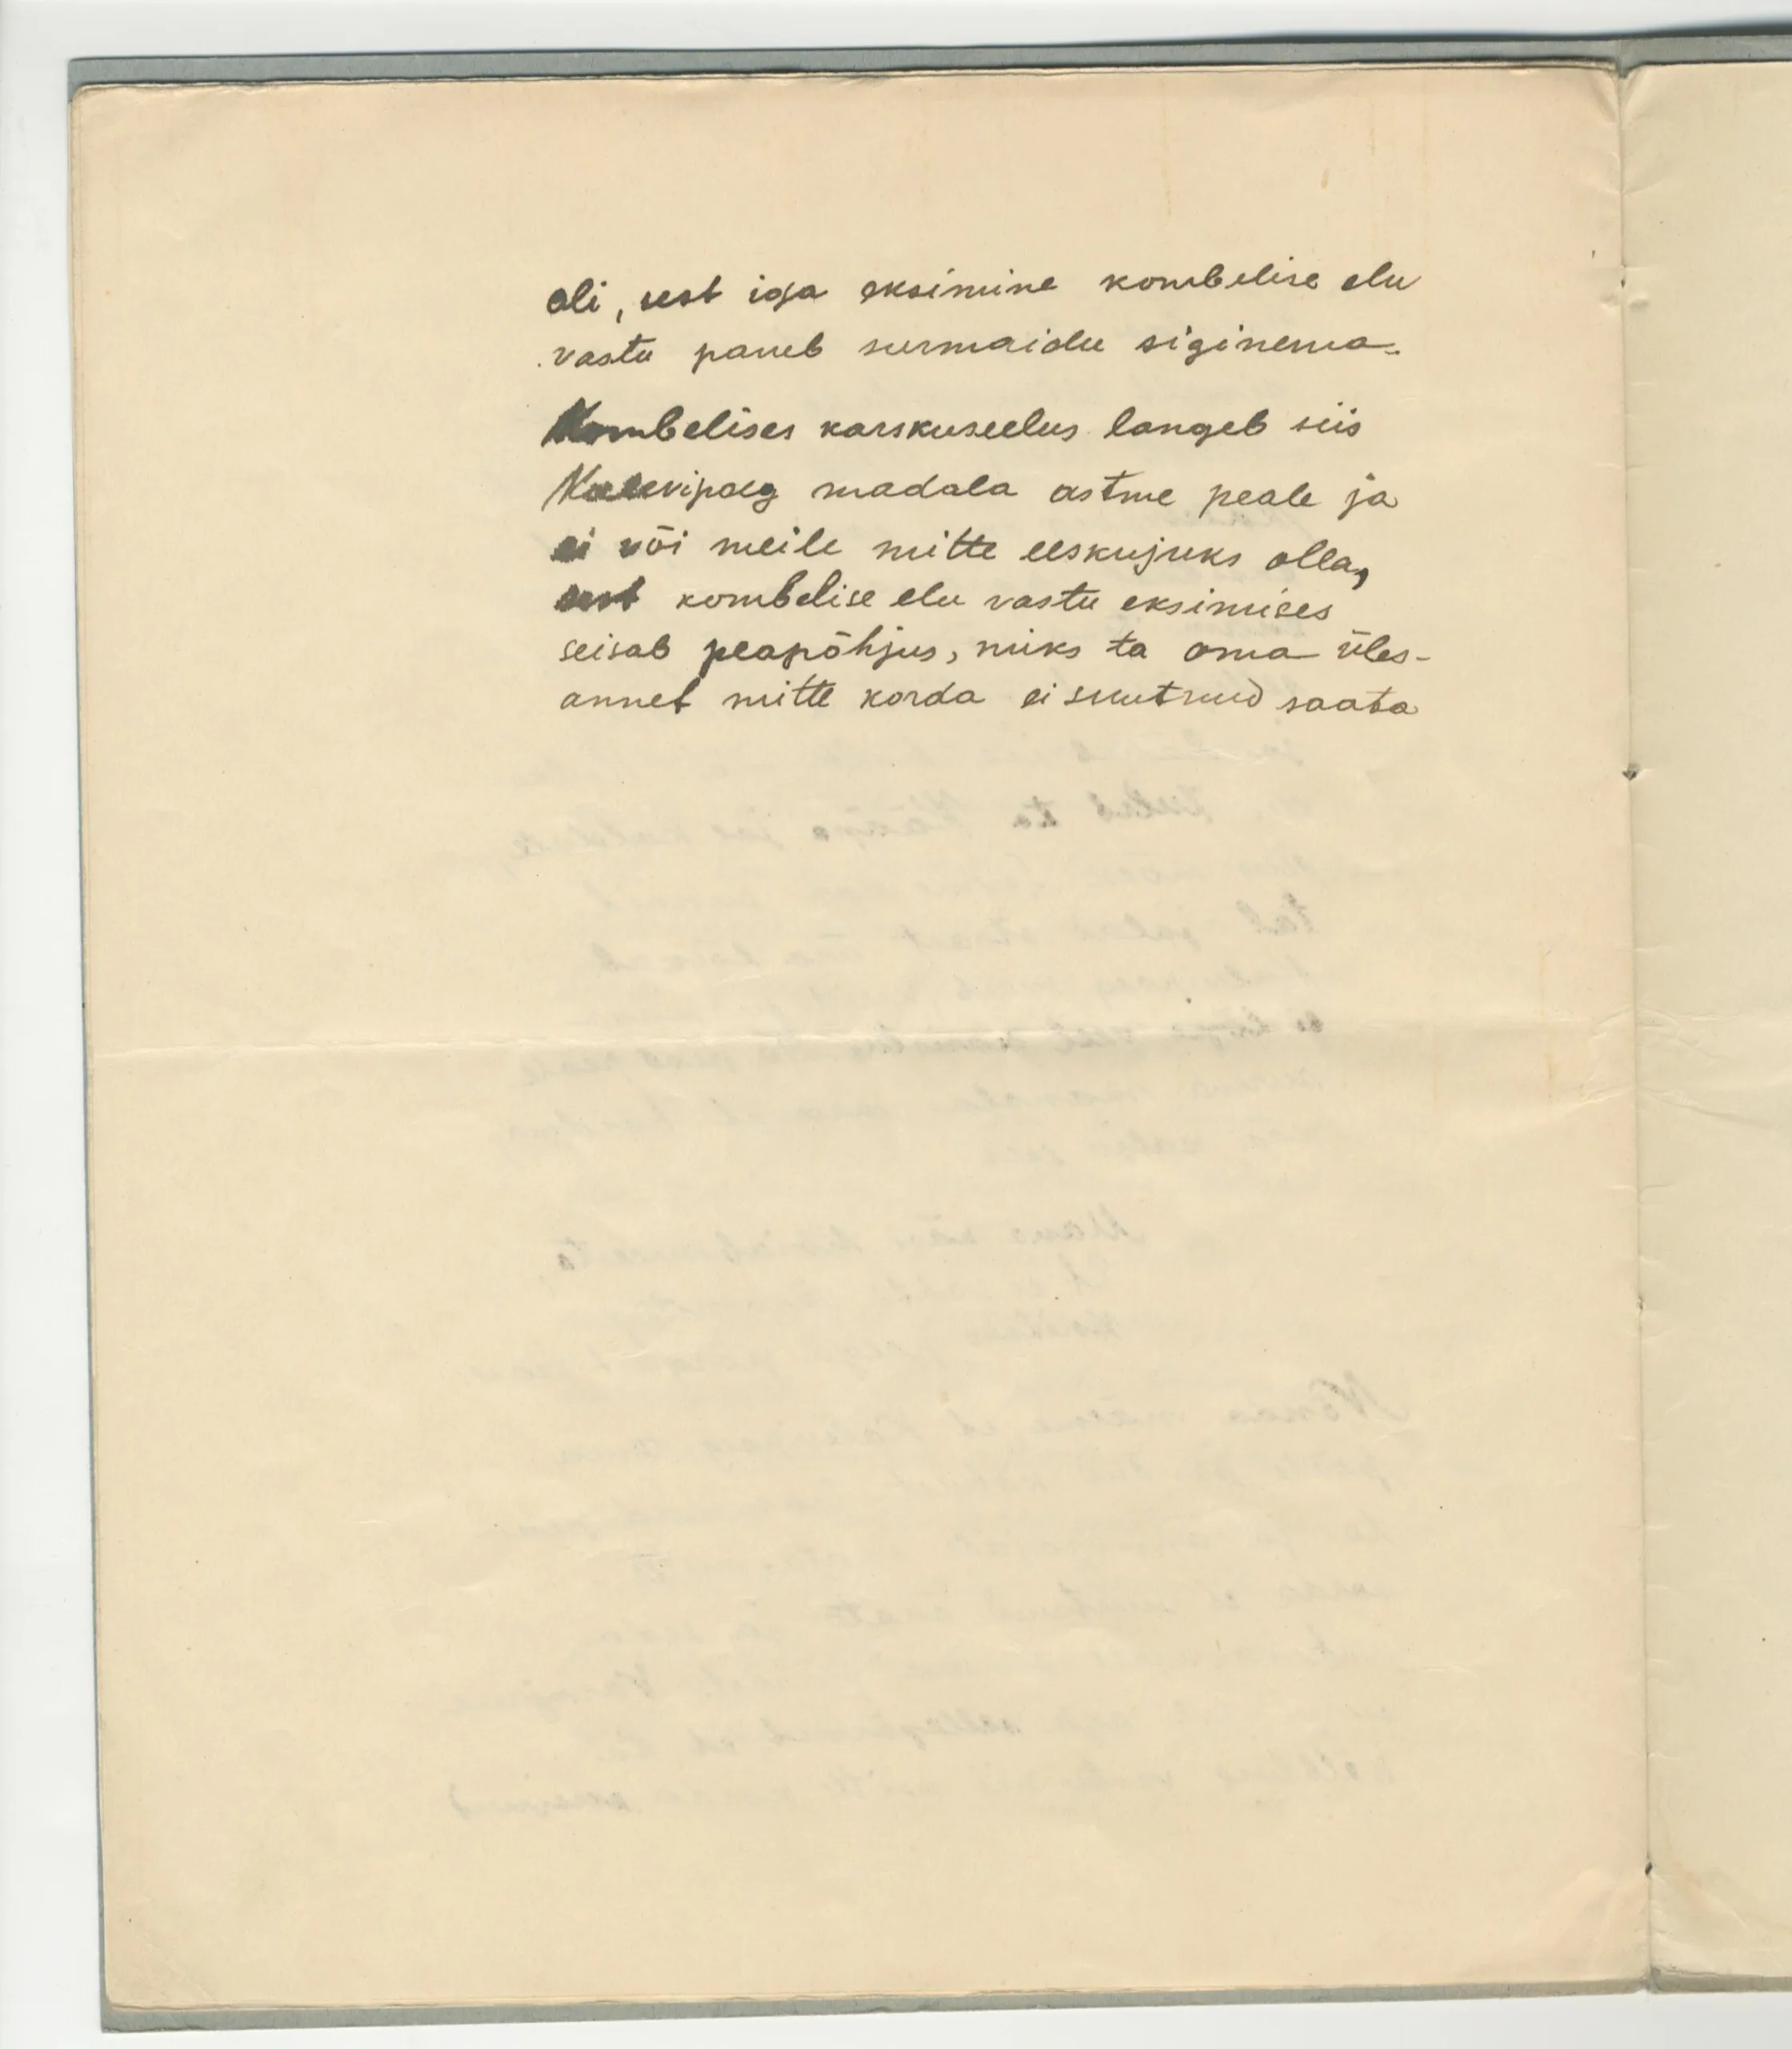 oli, sest iga eksimine kombelise elu
vastu paneb surmaidu siginema.
Kombelises karskuseelus langeb siis
Kalevipoeg madala astme peale ja
ei või meile mitte eeskujuks olla,
sest kombelise elu vastu eksimises
seisab peapõhjus, miks ta oma üles-
annet mitte korda ei suutnud saata